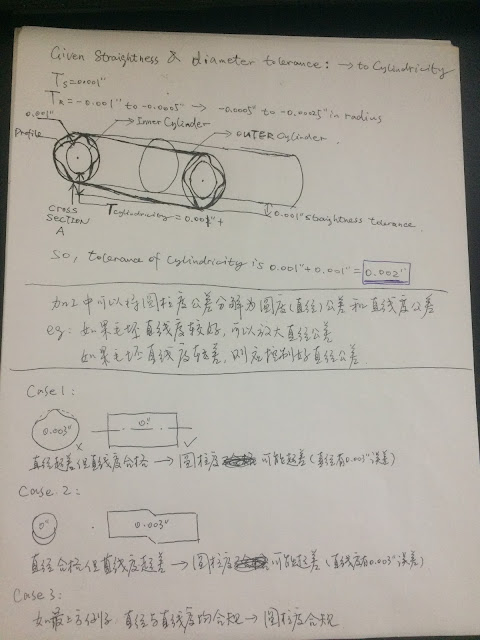 Given Straightness & diameter tolerance: → to Cylindricity
Ts=0.001"
TR=-0.001" to -0.0005" → -0.0005" to -0.00025" in radius
0.001"
Inner Cylinder
OUTER Cylinder
Profile
CROSS
SECTION
A
Tcylindricity = 0.001"+
0.001" straightness tolerance.
So, tolerance of Cylindricity is 0.001"+0.001" = 0.002"
加工中可以将圆柱度公差分解为圆度(直径)公差和直线度公差
eg: 如果毛坯直线度较好,可以放大直径公差
如果毛坯直线度较差,则应控制好直径公差
Case 1:
0.003"
0"
直径超差但直线度合格 → 圆柱度可能超差(直径有0.001"误差)
Case 2:
0"
0.003"
直径合格但直线度超差 → 圆柱度可能超差(直线度有0.003"误差)
Case 3:
如最上方例子,直径与直线度均合规 → 圆柱度合规